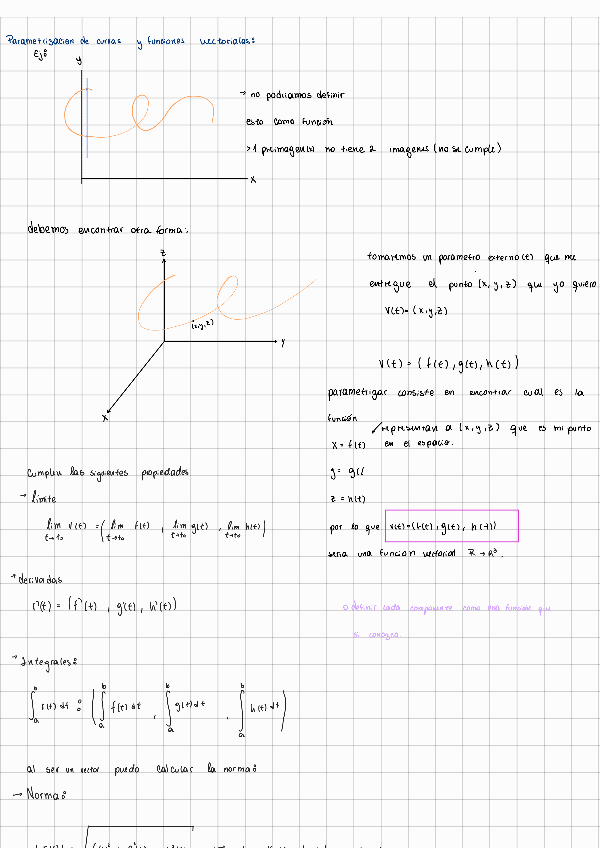 Parametrización de curvas y funciones vectoriales:
Ej:
y
→ no podríamos definir
esto como función
>1 preimagen(x) no tiene 2 imagenes (no se cumple)
x
debemos encontrar otra forma:
z
(x,y,z)
y
x
tomaremos un parametro externo (t) que me
entregue el punto (x, y, z) que yo quiera
v(t)=(x,y,z)
v(t) = (f(t), g(t), h(t))
parametrizar consiste en encontrar cual es la
función
representan a (x,y,z) que es mi punto
x = f(t) en el espacio.
y = g(t
z = h(t)
por lo que v(t)=(f(t), g(t), h(t))
seria una funcion vectorial R → R³.
definir cada componente como una función que
si conozca.
Cumplen las siguientes propiedades
→ limite
lim t→t₀ v(t) = (lim t→t₀ f(t), lim t→t₀ g(t), lim t→t₀ h(t))
→ derivadas
r'(t) = (f'(t), g'(t), h'(t))
→ Integrales:
∫ₐᵇ r(t) dt : (∫ₐᵇ f(t) dt, ∫ₐᵇ g(t) dt, ∫ₐᵇ h(t) dt)
al ser un vector puedo calcular la norma:
→ Norma: